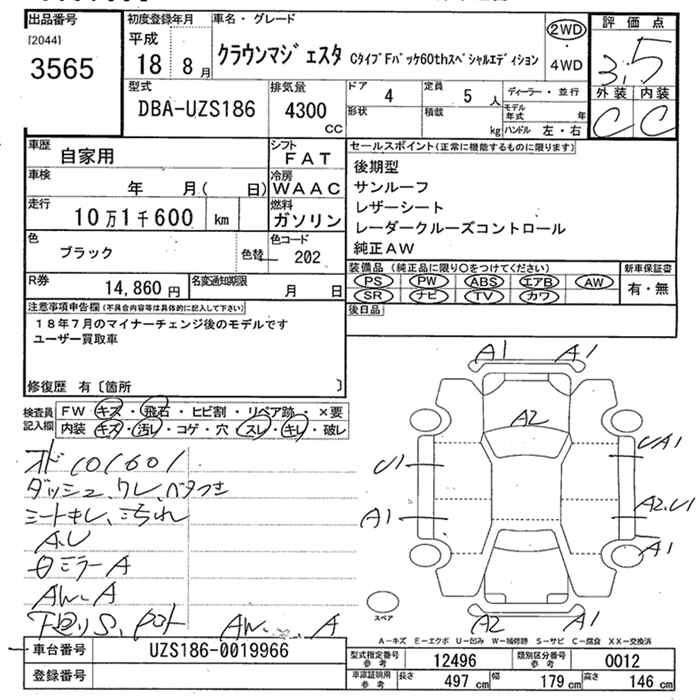 出品番号 初度登録年月 車名・グレード 2WD 評価点
[2044] 平成
3565 18 8月 クラウンマジェスタ CタイプFパッケ60thスペシャルエディション 4WD 3.5
型式 排気量 ドア 定員 ディーラー・並行 外装 内装
DBA-UZS186 4300 CC 4 5 人 モデル年式 年 C C
形状 積載 kg ハンドル 左・右
車歴 自家用 シフト FAT セールスポイント(正常に機能するものに限ります)
車検 年 月( 日) 冷房 WAAC 後期型
サンルーフ
走行 10万1千600 km 燃料 ガソリン レザーシート
レーダークルーズコントロール
色 ブラック 色替 色コード 202 純正AW
R券 14,860円 名変通知期限 月 日 装備品(純正品に限り○をつけてください) 新車保証書
PS PW ABS エアB AW 有・無
SR ナビ TV カワ
注意事項申告欄(不具合内容等は具体的に記入して下さい) 後日品
18年7月のマイナーチェンジ後のモデルです
ユーザー買取車
修復歴 有〔箇所 〕
検査員記入欄 FW キズ・飛石・ヒビ割・リペア跡・×要
内装 キズ・汚レ・コゲ・穴・スレ・キレ・破レ
A1 A1
A2
U1 UA1
A1 A2.U1
A1
A2 A1
101601
ダッシュ、ワレ、ベタつき
シートキレ、汚れ
A.U
ミラーA
AW.A
AW A
スペア
A-キズ E-エクボ U-凹み W-補修跡 S-サビ C-腐食 XX-交換済
車台番号 UZS186-0019966 型式指定番号 参考 12496 類別区分番号 参考 0012
登録番号 車庫証明用 参考 長さ 497 cm 幅 179 cm 高さ 146 cm